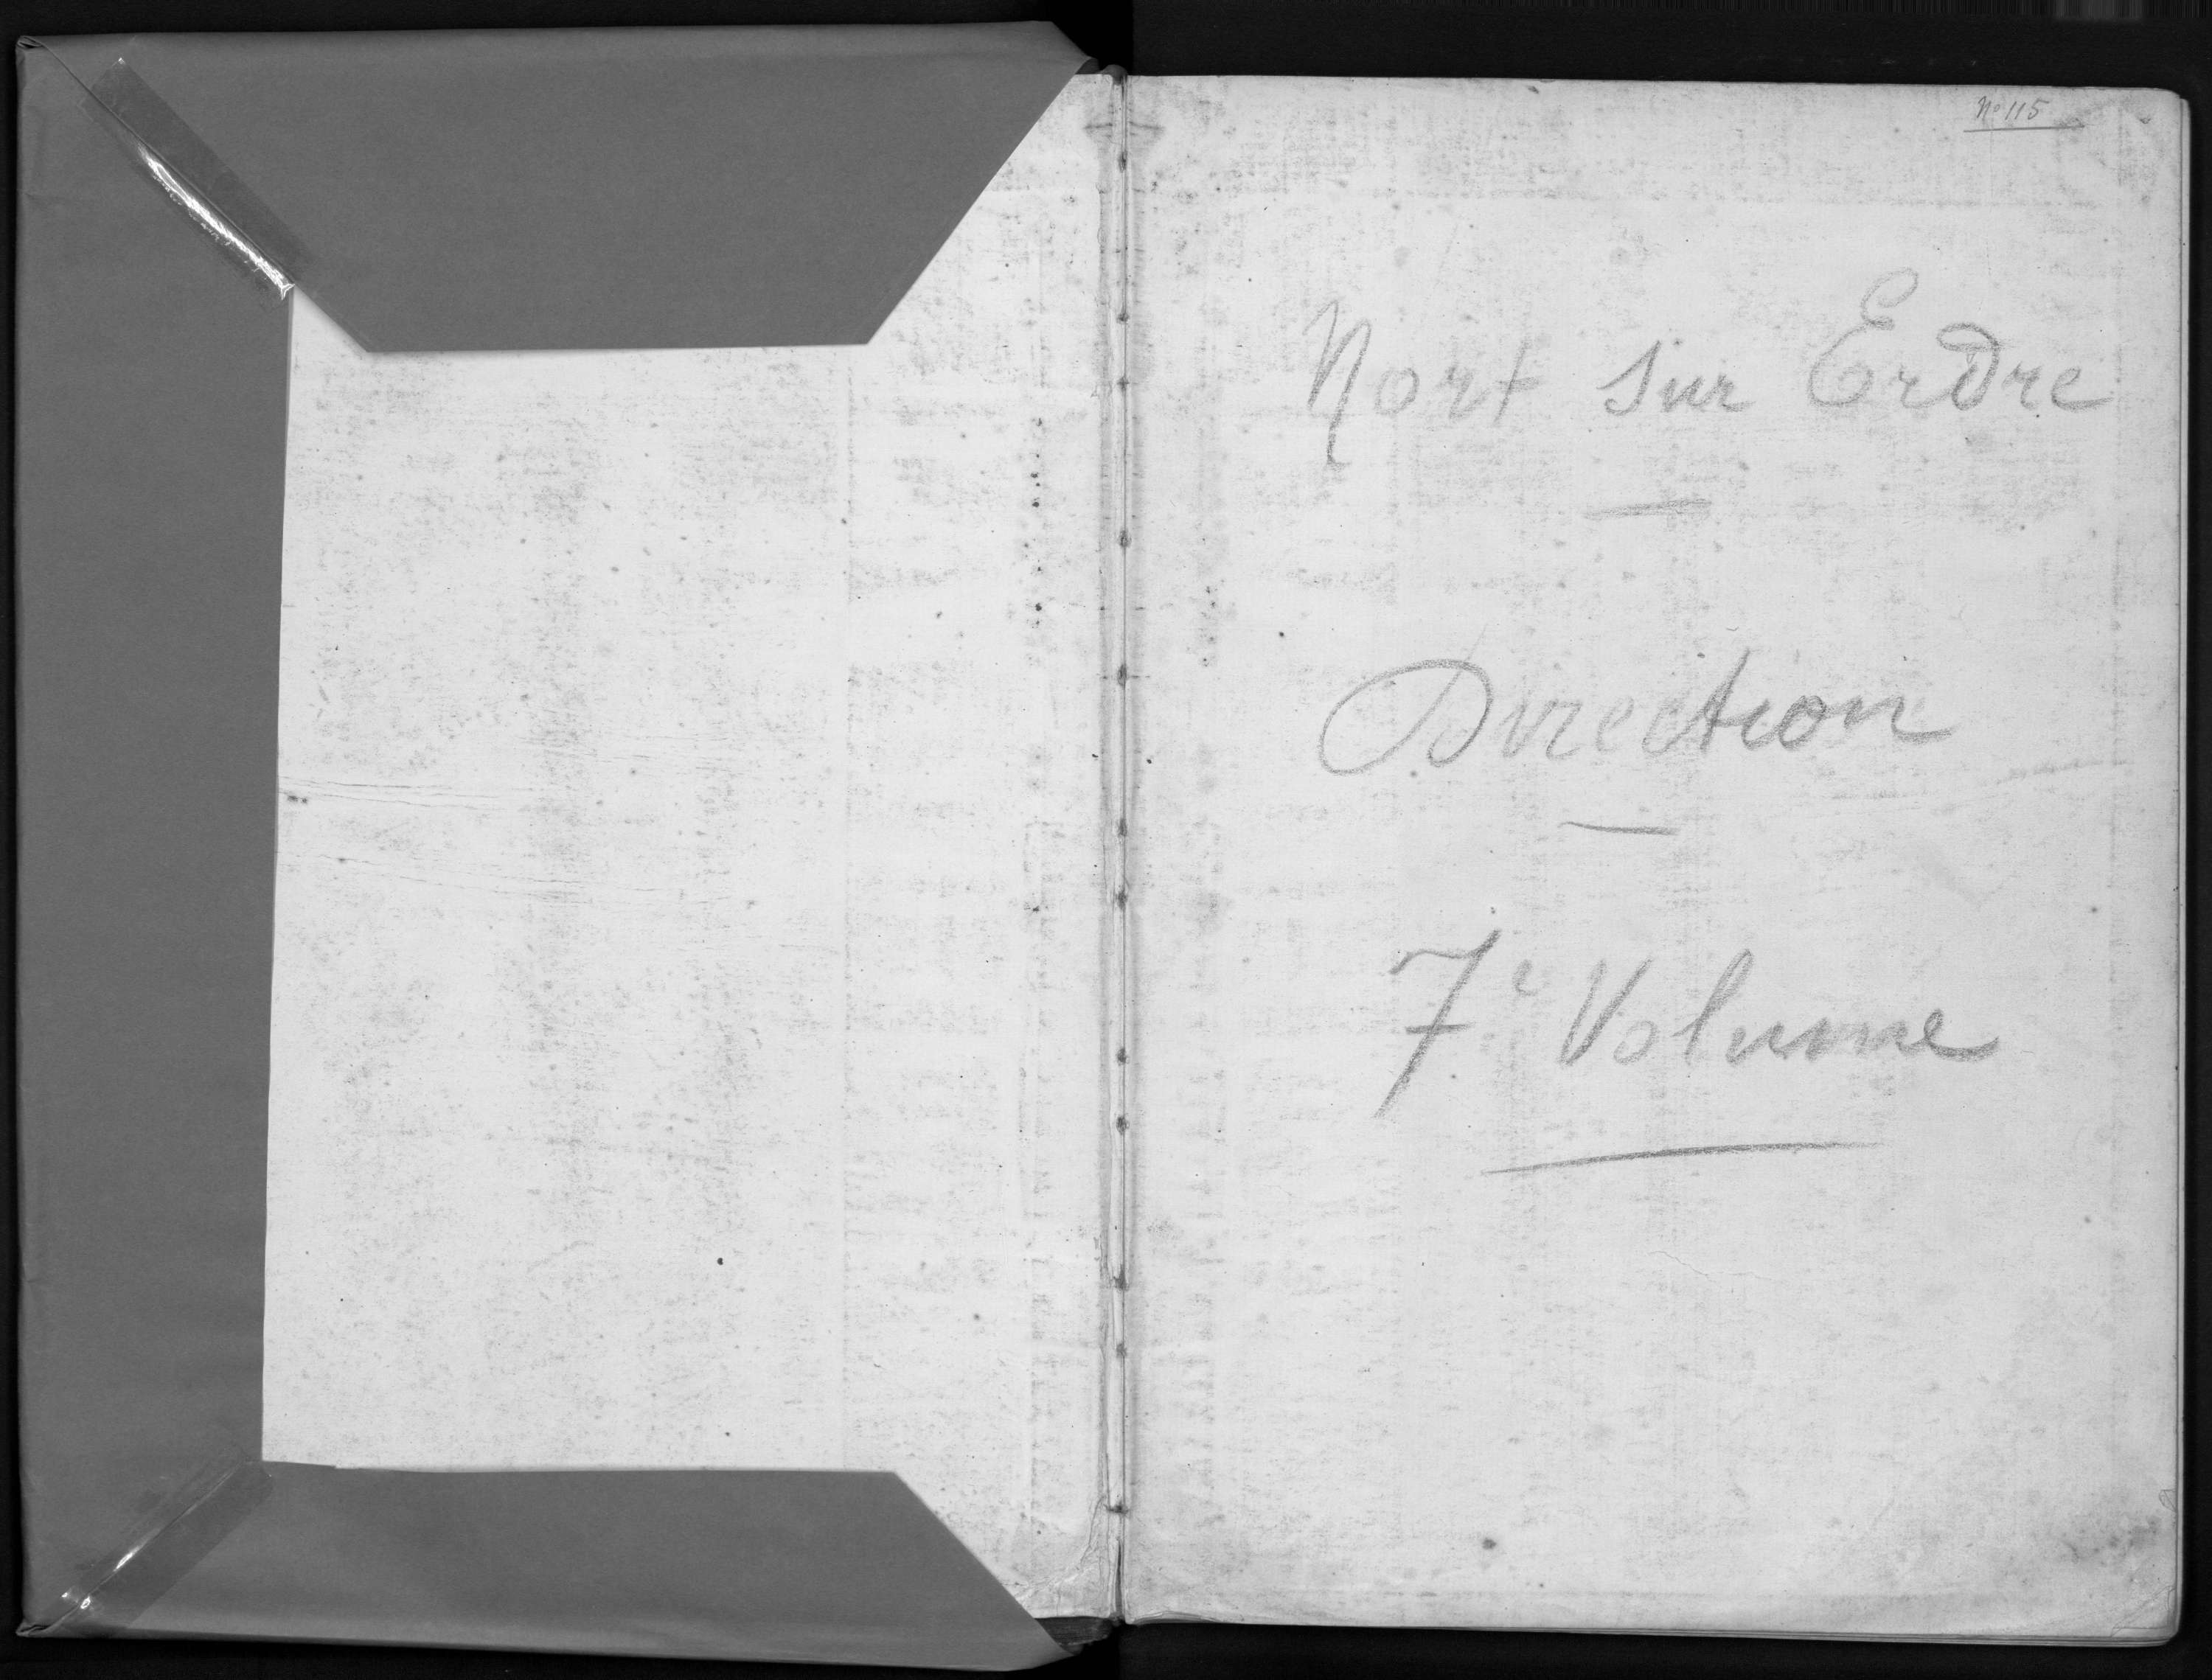 N° 115
Nort sur Erdre
Direction
7e Volume